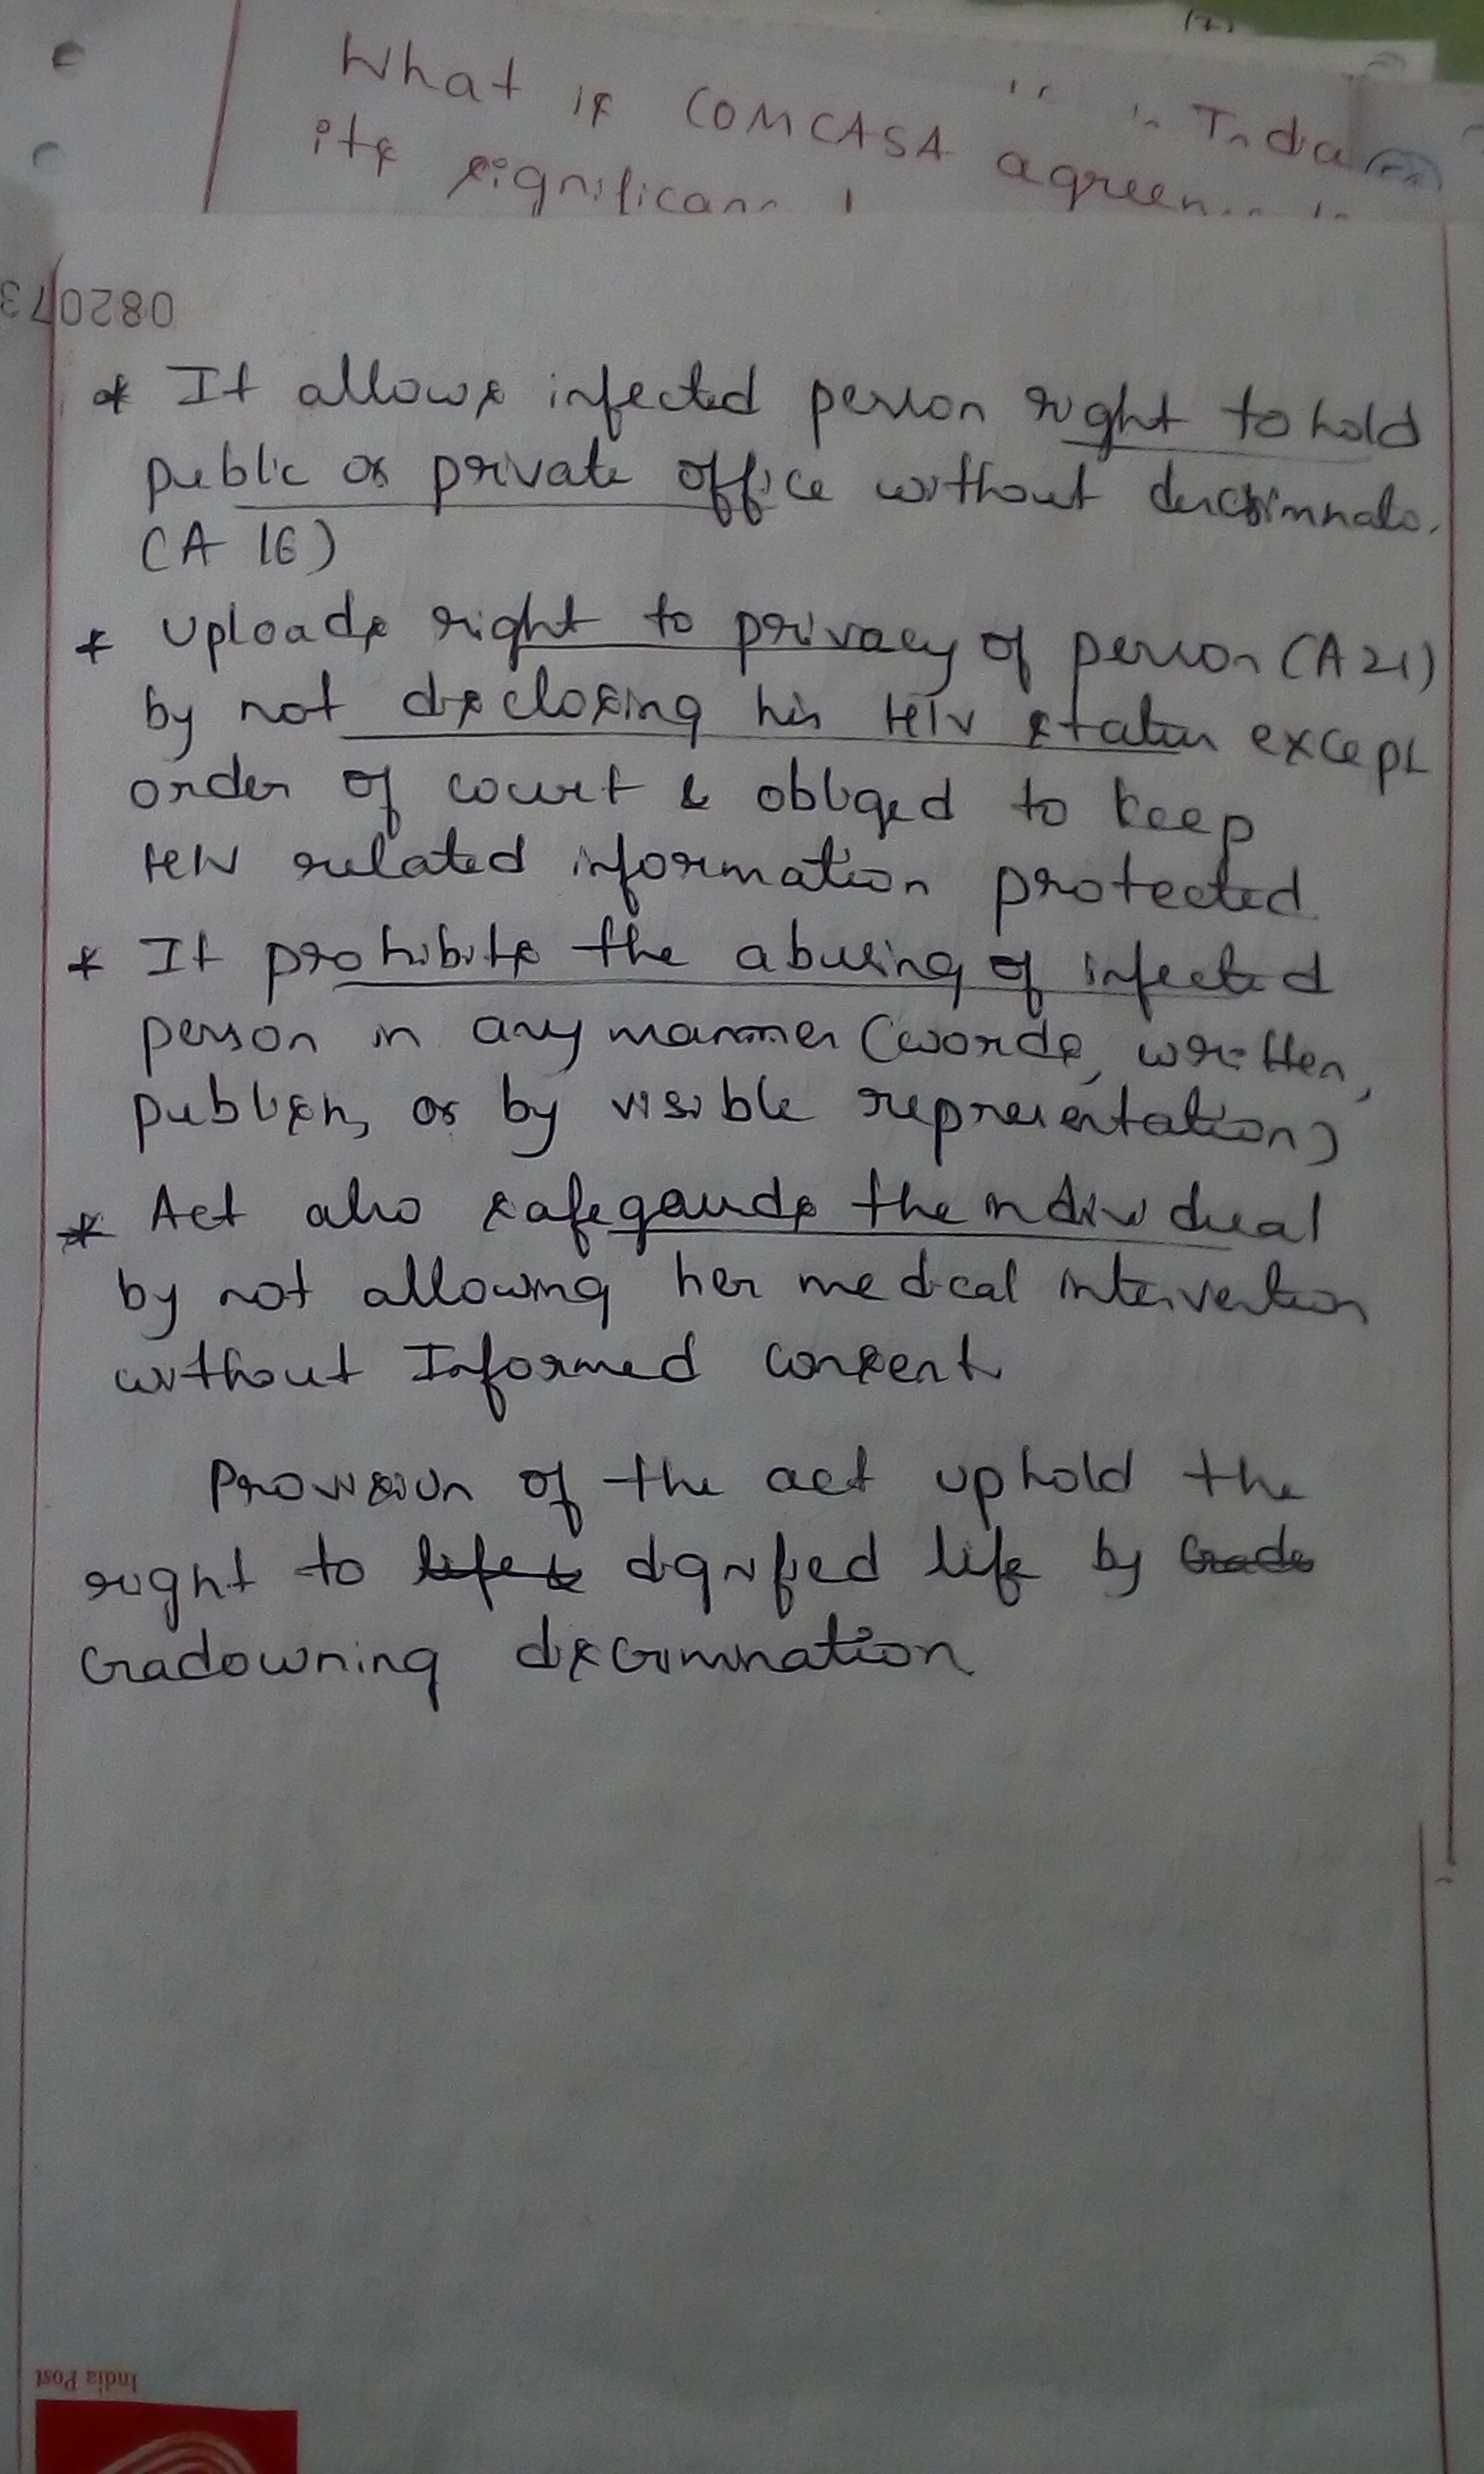 What is COMCASA agreen
in India
its significan
082073
* It allows infected person right to hold
public or private office without
(A 16)
* Uploads right to privacy of person (A 21)
by not disclosing his HIV status except
order of court & obliged to keep
HIV related information protected
* It prohibits the abusing of infected
person in any manner (words, written,
publish, or by visible representation)
* Act also safegaurds the individual
by not allowing her medical intervention
without Informed consent
Provision of the act uphold the
right to life & dignified life by Grado
Gradowning discrimination
India Post